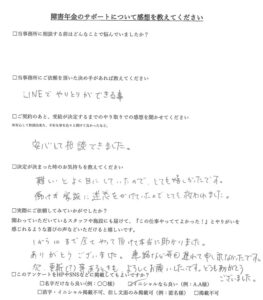 障害年金のサポートについて感想を教えてください
□当事務所に相談する前はどんなことで悩んでいましたか?
□当事務所にご依頼を頂いた決め手があれば教えてください
LINEでやりとりができる事
□ご契約のあと、受給が決定するまでのやり取りでの感想を聞かせてください
安心して相談できました。
□決定が決まった時のお気持ちを教えてください
難しいとよく耳にしていたので、とても嬉しかったです。
働けず家族に迷惑をかけていたのでとても救われました。
□実際にご依頼してみていかがでしたか?
関わっていただいているスタッフや施設にも届けて、「この仕事やっててよかった!」とやりがいを
感じれるような喜びの声をいただけると嬉しいです。
1から10まで全てやって頂けて本当に助かりました。
ありがとうございました。
次、更新の時もよろしくお願いいたします。
□このアンケートをHPやSNSなどに掲載してもよいですか?
□名字だけなら良い(例:○○様) □イニシャルなら良い(例:A.A様)